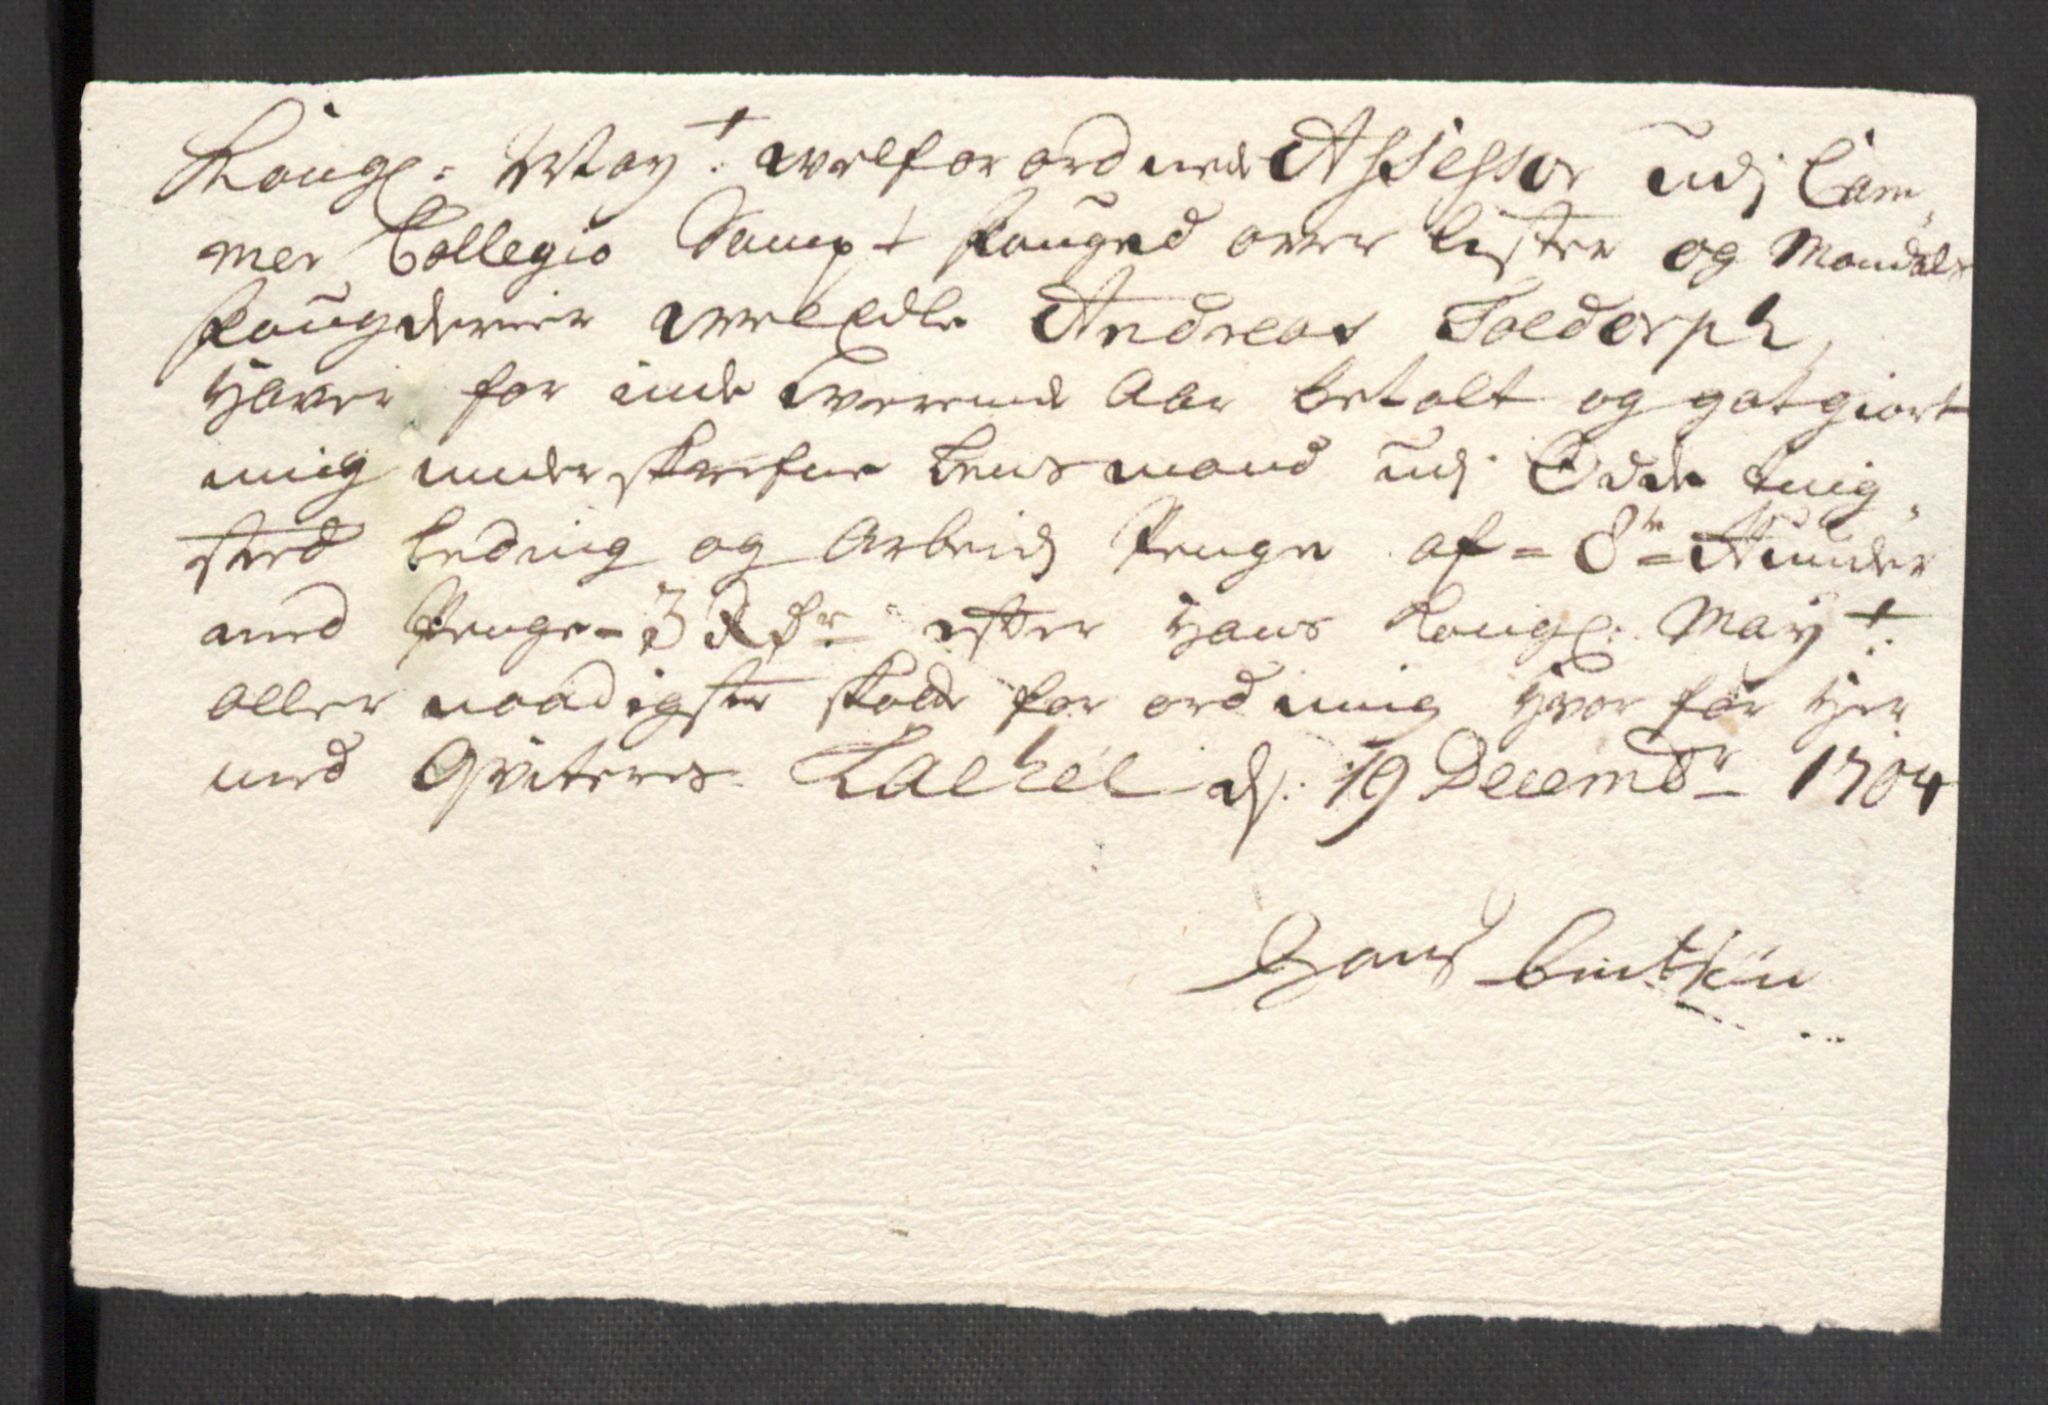 Kongl: May.t welforordnede Assessor udj Cam,,
mer Collegio Sampt fouged over Lister og Mandals
fougderier welEdle Andreas Toldorph,
Haver for inde werende Aar betalt og gotgiort
mig underskrefne Lensmand udj Odde ting,,
sted Leding og Arbeids Penge af = 8te =
med Penge = 3 Rdr effter Hans Kongl: May.t:
aller naadigste skatte for ordning Hvor for Her
med Qviteres d: 19 Decembr 1704
Hans Bentsen